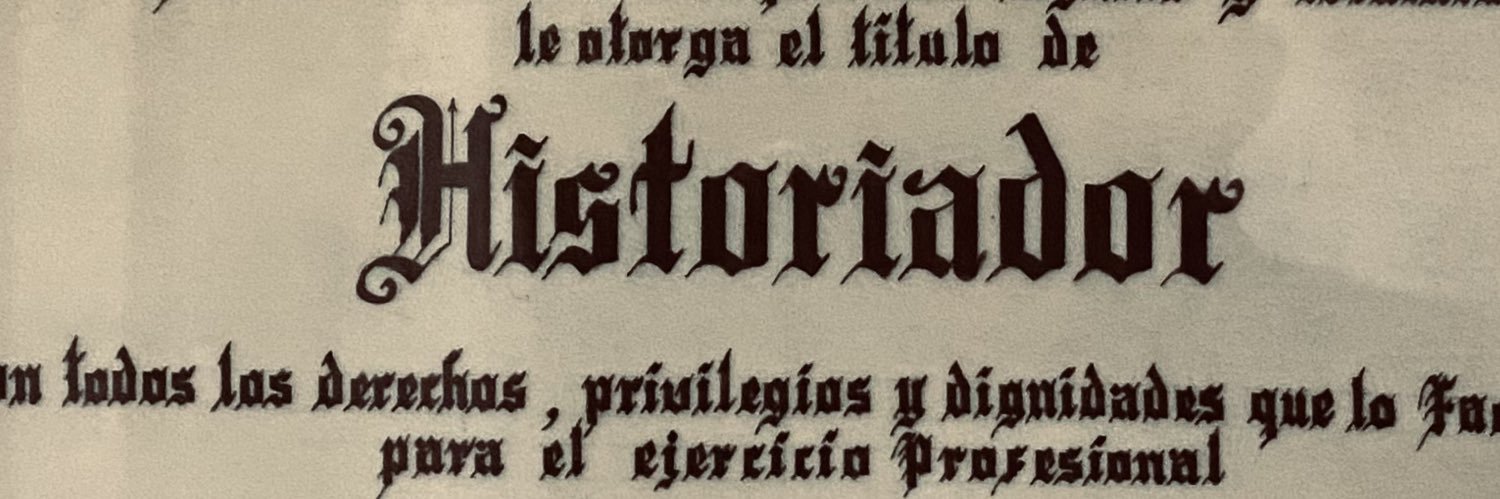 le otorga el titulo de
Historiador
todos los derechos, privilegios y dignidades que lo
para el ejercicio Profesional